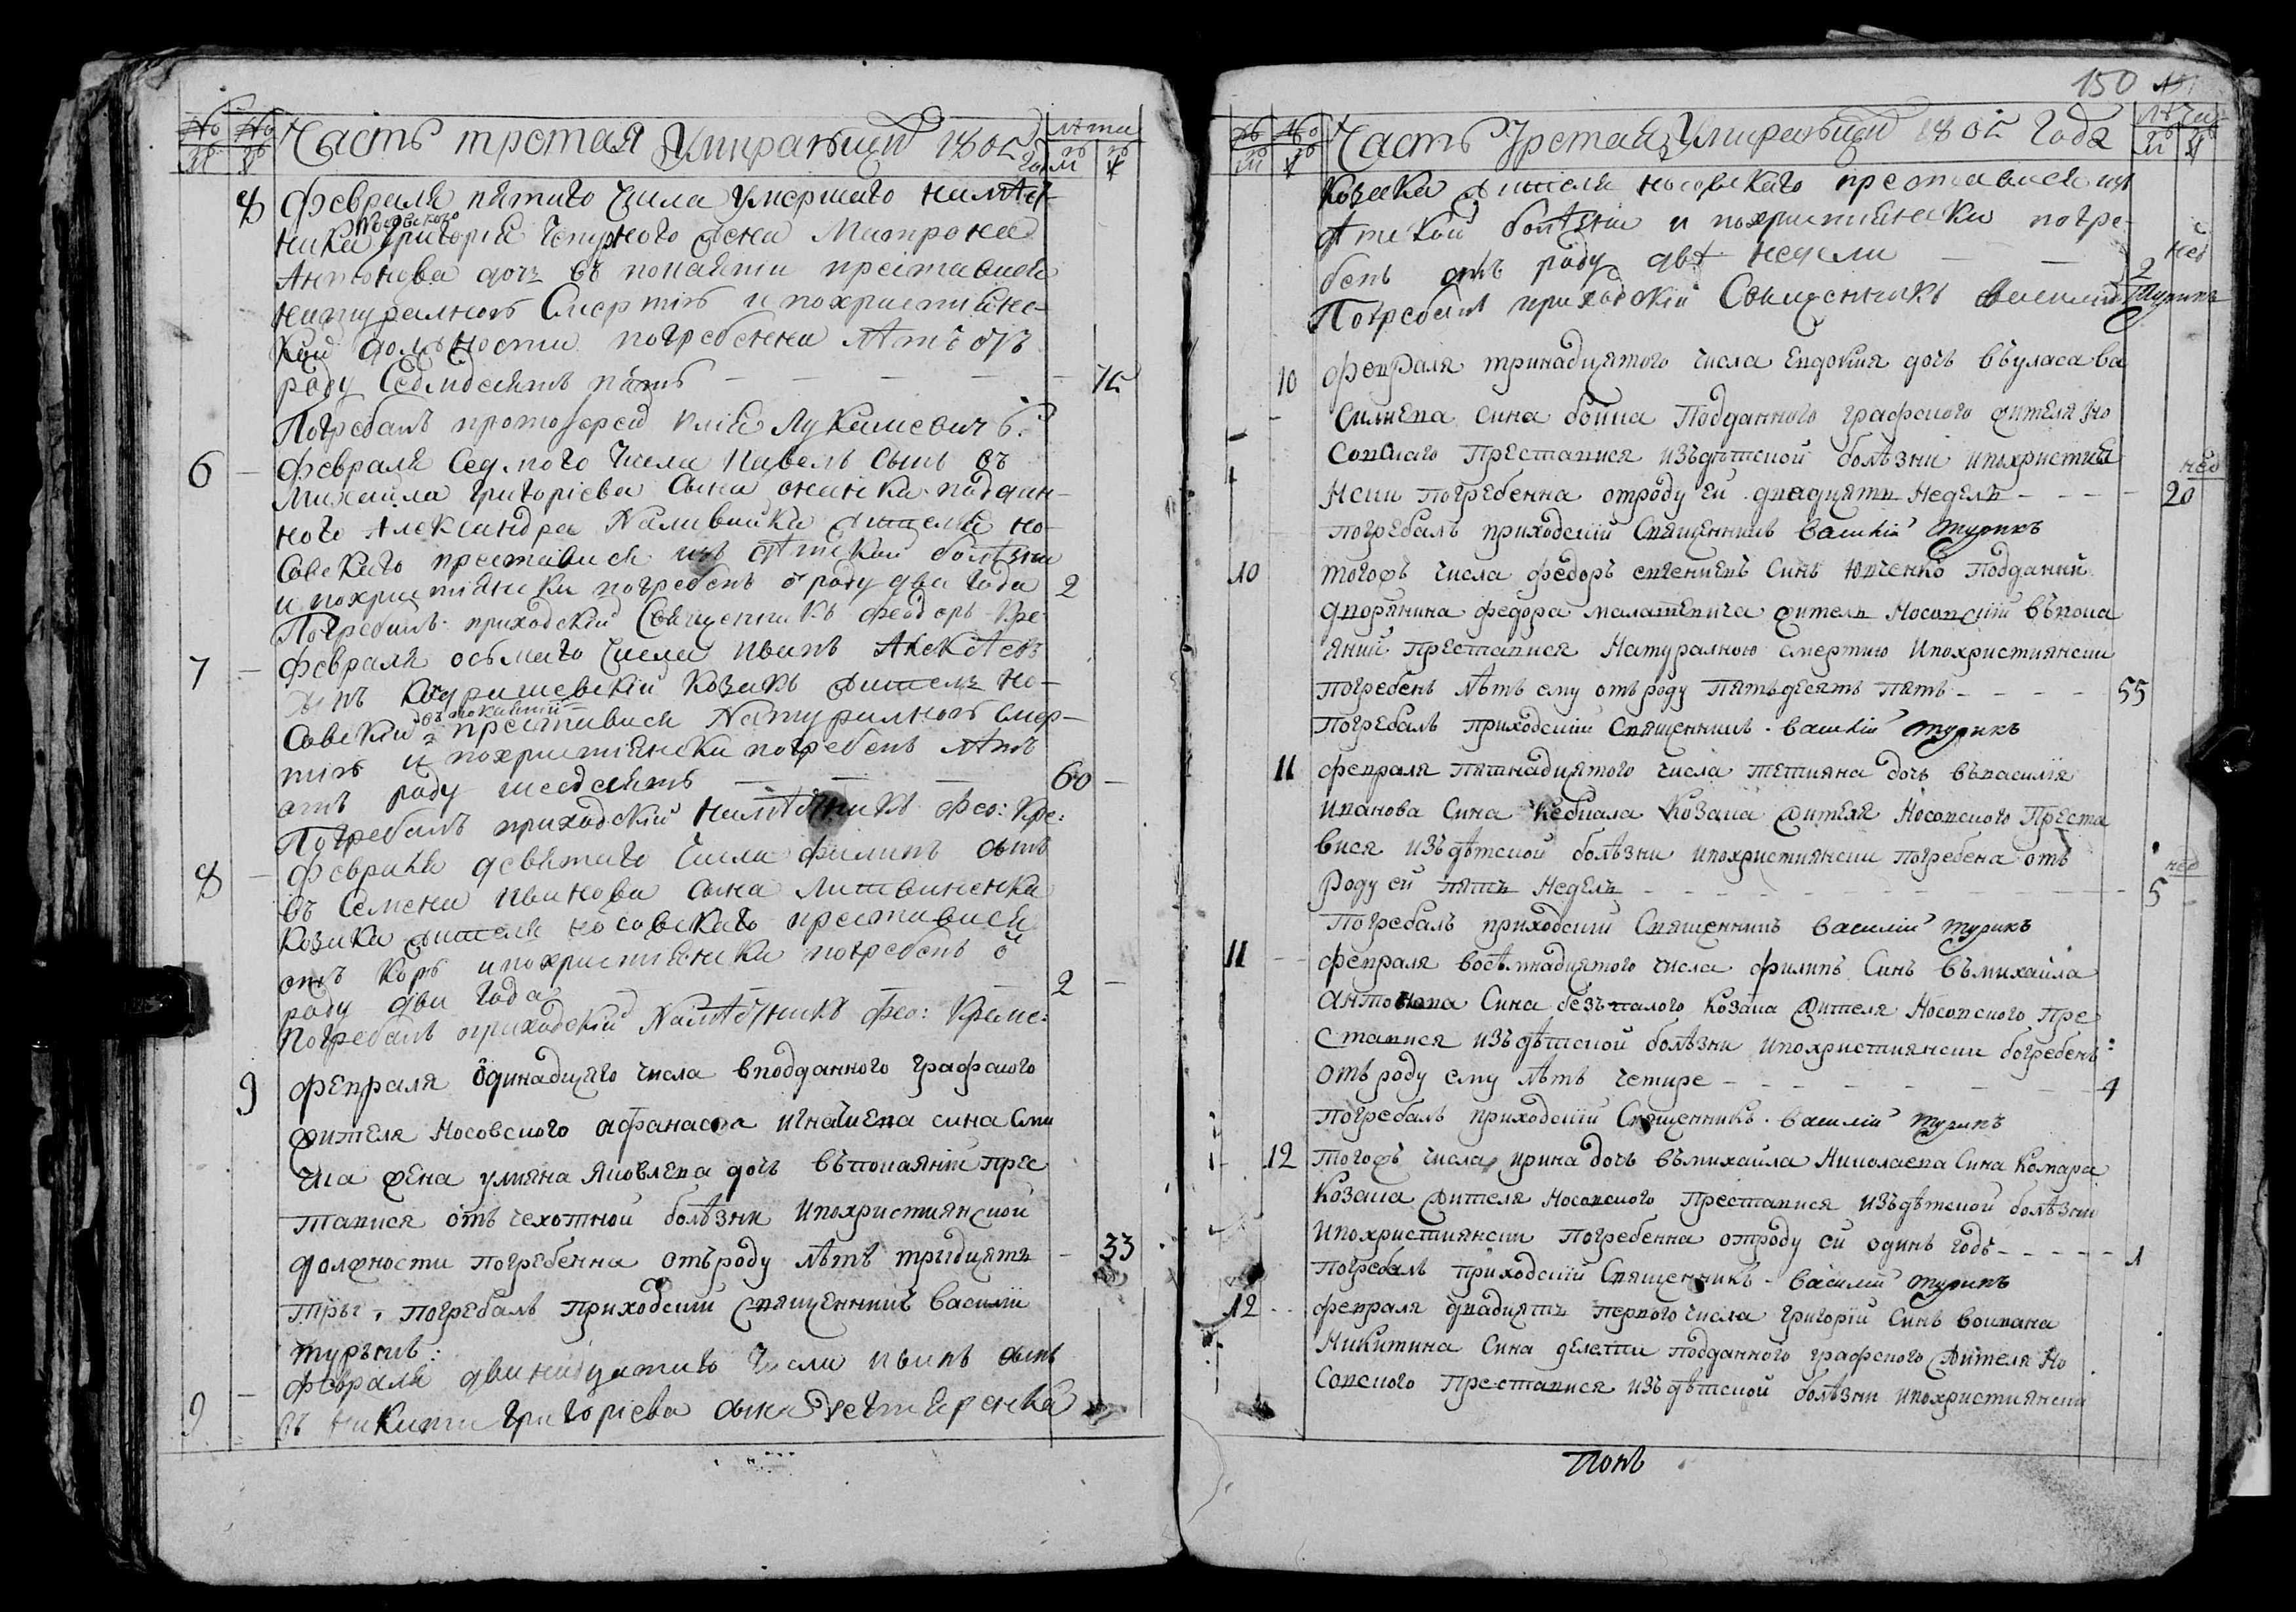 № №
М Ж
Часть третая Умиравшии 1805 года
Лѣта
М Ж
8 Февраля пятаго числа Умершаго намѣст-
Носовского
ника Григорія Чепурного жена Матрона
Антонова дочь въ покаяніи преставися
натуралною Смертію и похристиянс-
кой должности погребенна лѣтъ отъ
роду Седмдесятъ пять 75
Погребалъ протоіерей Илія Лукашевичъ
6 Февраля Седмого Числа Павелъ сынъ въ
Михайла Григоріева сына поддан-
ного Александра Наливайки жителя но-
совскаго преставися изъ дѣтской болѣзни
и похристиянски погребенъ ѿ роду два года 2
Погребалъ приходскій Священникъ Феодоръ Кре
7 Февраля осьмаго Числа Иванъ Алексѣевъ
сынъ козакъ житель но-
въ покаянии
совскій преставися Натуралною смер-
тію и похристиянски погребенъ лѣтъ
отъ роду шесдесятъ 60
Погребалъ приходскій намѣстникъ Фео: Кре:
8 Февраля девятаго Числа Филипъ сынъ
въ Семена Иванова сына Литвиненка
Козака жителя носовскаго преставися
отъ корѣ и похристиянски погребенъ ѿ
роду два года 2
Погребалъ приходскій Намѣстникъ Фео: Креме:
9 Февраля одинадцяго числа в подданного графского
жителя Носовского Афанасия Игнатиева сина
жена улияна Яковлева дочъ въ покаяніи прес
тавися отъ чехотной болѣзни и похристиянской
должности погребенна отъ роду лѣтъ тридцять 33
тры, погребалъ приходский священникъ василии
турыкъ:
9 Февраля дванадцятаго Числа иванъ сынъ
въ Никити Григоріева сына Дегтяренка
150
№ №
М Ж
Часть Третая Умиравшии 1805 Года
Лѣта
М Ж
Козака жителя носовскаго преставися изъ
дѣтской болѣзни и похристиянски погре-
бенъ отъ роду двѣ недели 2 нед
Погребалъ приходскій Священникъ Василій Турикъ
10 февраля тринадцятого числа Евдокия дочъ въ уласа ва
силиева сина бойка Подданного графского жителя Но
совского Преставися изъ дѣтской болѣзни и похристия
нски погребенна отроду ей двадцять Неделъ 20 нед
погребалъ приходский Священникъ василий турикъ
10 тогожъ числа федоръ Синъ Юрченко Подданий
дворянина федора малашевича житель Носовский въ пока
яний Преставися Натуралною смертию и похристиянски
погребенъ лѣтъ ему отъ роду Пятьдесятъ пять 55
Погребалъ приходский Священникъ василий турикъ
11 февраля пятнадцятого числа тетияна дочъ въ василія
иванова Сина Козака жителя Носовского Преста
вися изъ дѣтской болѣзни и похристиянски погребена отъ
роду ей пять Неделъ 5 нед
Погребалъ приходский Священникъ василий турикъ
11 февраля восѣмнадцятого числа филипъ Синъ въ михайла
антонова Сина безъпалого Козака жителя Носовского Пре
ставися изъ дѣтской болѣзни и похристиянски погребенъ
отъ роду ему лѣтъ четире 4
погребалъ приходский Священникъ василий турикъ
12 тогожъ числа ирина дочъ въ михайла Николаева Сина Комара
Козака жителя Носовского Преставися изъ дѣтской болѣзни
и похристиянски погребенна отроду ей одинъ годъ 1
погребалъ приходский Священникъ василий турикъ
12 февраля двадцять первого числа григорій Синъ во ивана
Никитина Сина подданного графского жителя Но
совского Преставися изъ дѣтской болѣзни и похристиянски
Погъ